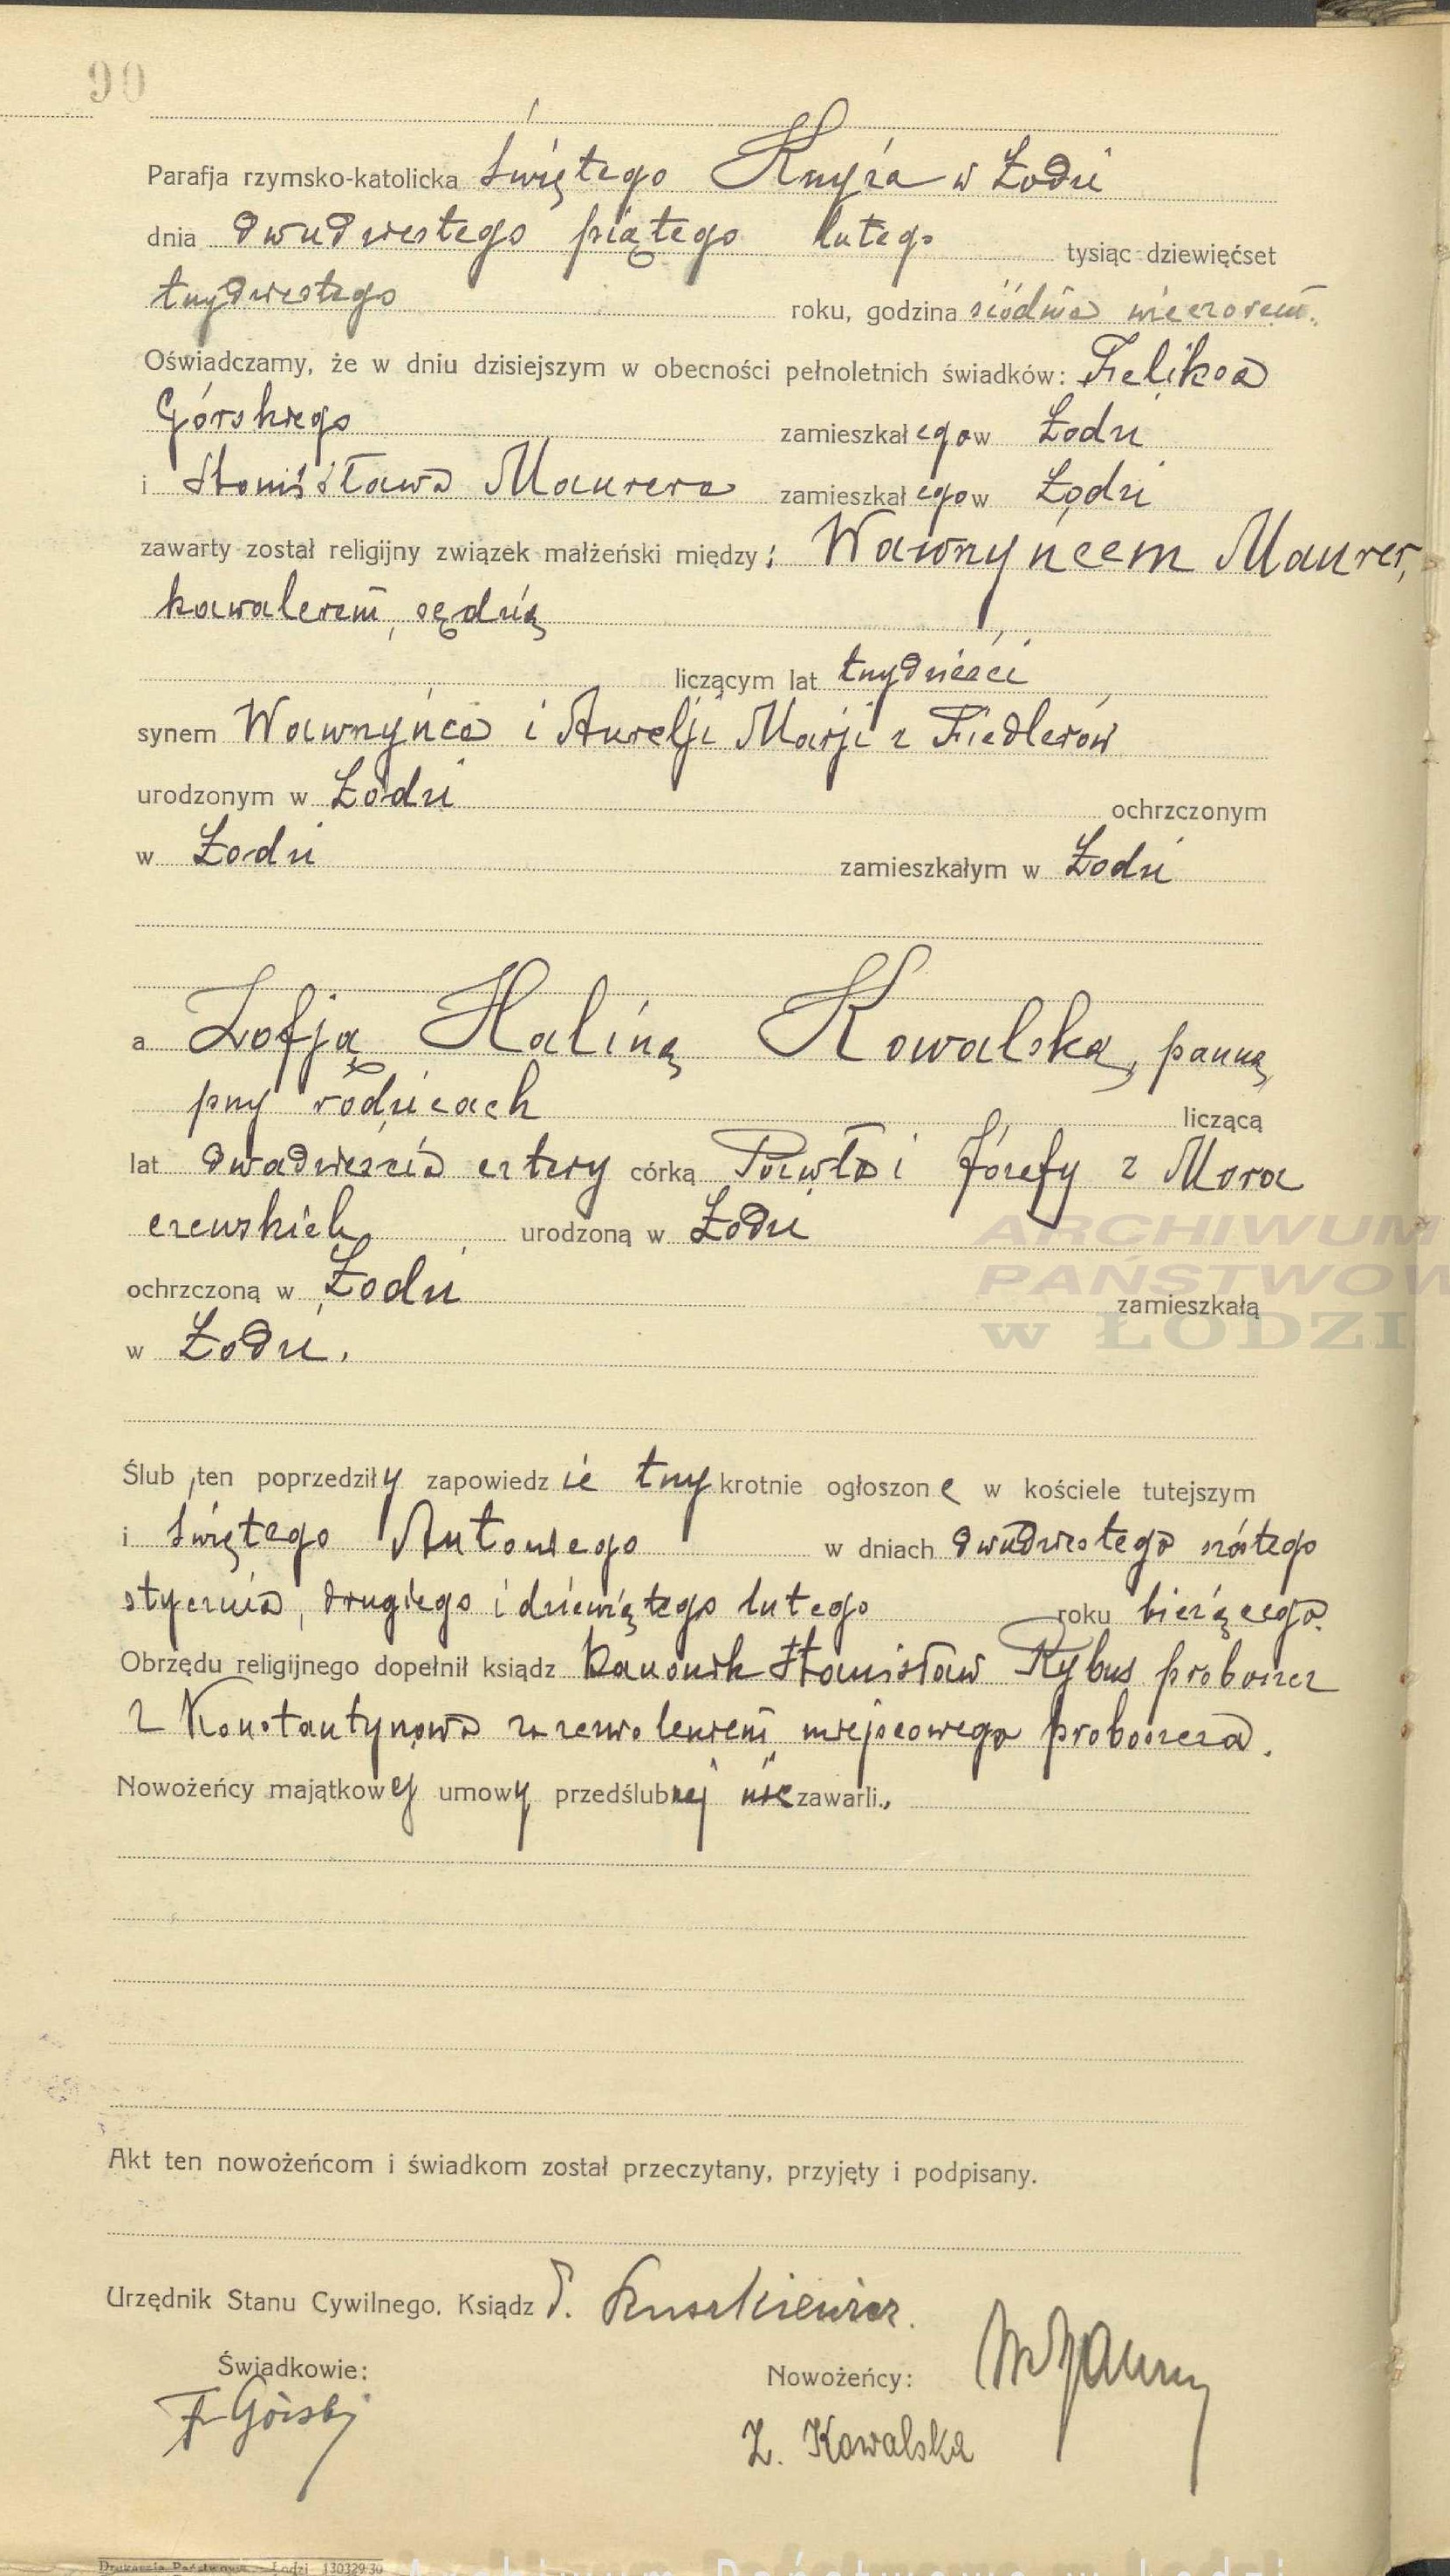 90
Parafja rzymsko-katolicka Świętego Krzyża w Łodzi
dnia dwudziestego piątego lutego tysiąc dziewięćset
trzydziestego roku, godzina siódma wieczorem.
Oświadczamy, że w dniu dzisiejszym w obecności pełnoletnich świadków: Feliksa
Górskiego zamieszkałego w Łodzi
i Stanisława Maurera zamieszkałego w Łodzi
zawarty został religijny związek małżeński między: Wawrzyńcem Maurer,
kawalerem, sędzią
liczącym lat trzydzieści
synem Wawrzyńca i Aurelji Marji z Fiedlerów
urodzonym w Łodzi ochrzczonym
w Łodzi zamieszkałym w Łodzi
a Zofją Haliną Kowalską, panną,
przy rodzicach licząca
lat dwadzieścia cztery córką Pawła i Józefy z Mora
czewskich urodzoną w Łodzi
ochrzczoną w Łodzi zamieszkałą
w Łodzi.
ARCHIWUM
PAŃSTWOW
w ŁODZI
Ślub ten poprzedziły zapowiedzie trzykrotnie ogłoszone w kościele tutejszym
i Świętego Antoniego w dniach dwudziestego szóstego
stycznia, drugiego i dziewiątego lutego roku bieżącego.
Obrzędu religijnego dopełnił ksiądz kanonik Stanisław Rybus proboszcz
z Konstantynowa za zezwoleniem miejscowego proboszcza.
Nowożeńcy majątkowej umowy przedślubnej nie zawarli.
Akt ten nowożeńcom i świadkom został przeczytany, przyjęty i podpisany.
Urzędnik Stanu Cywilnego, Ksiądz
Świadkowie: Nowożeńcy:
F Górski
Z. Kowalska
Drukarnia Państwowa Łodzi 130329-30
Archiwum Państwowe w Łodzi